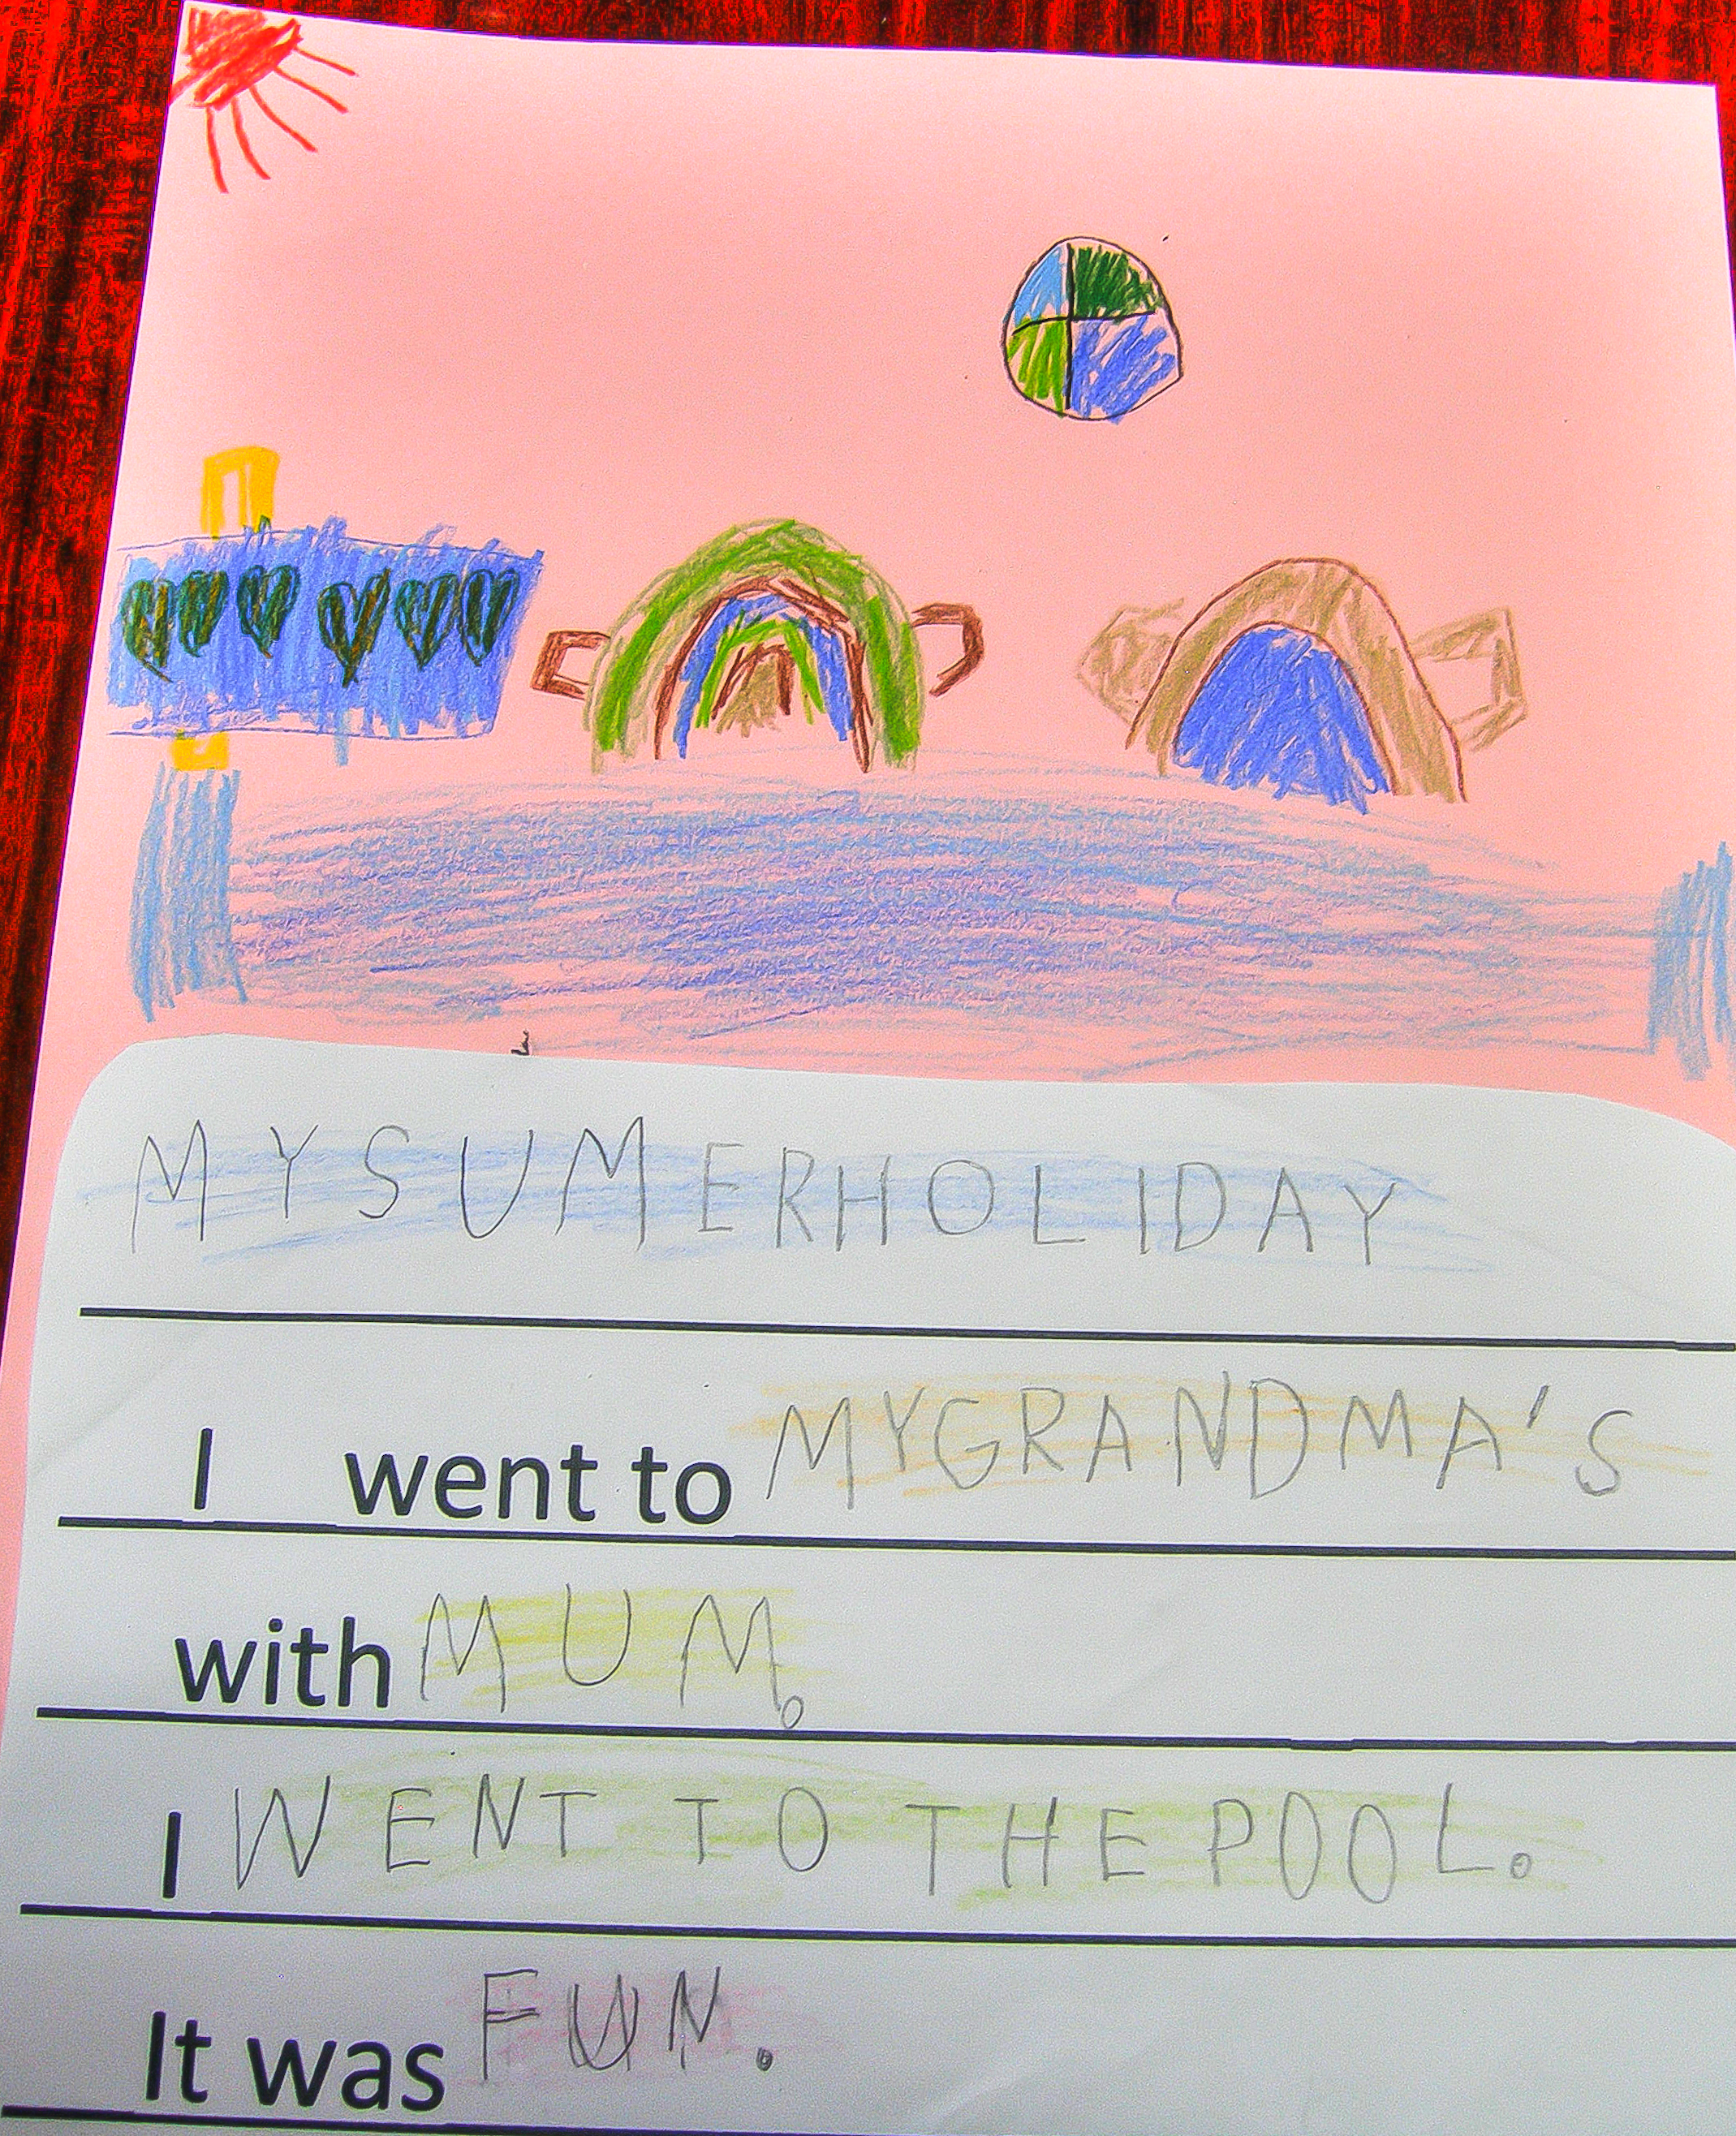 MY SUMER HOLIDAY
I went to MY GRANDMA'S
with MUM.
I WENT TO THE POOL.
It was FUN.